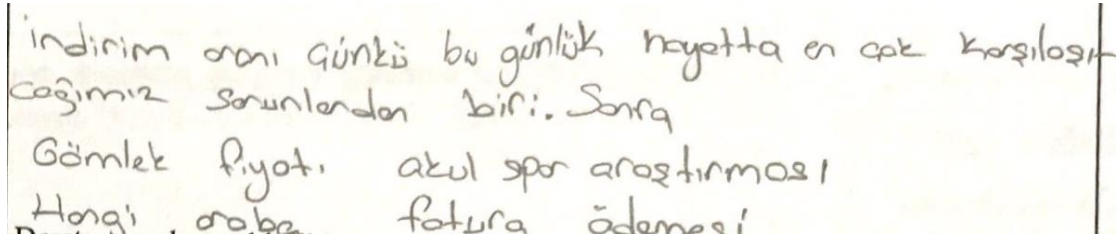 indirim oranı Günkü bu günlük hayatta en çok karşılaşıl
cağımız sorunlardan biri. Sonra
Gömlek fiyatı akul spor araştırması
Hangi araba fatura ödemesi